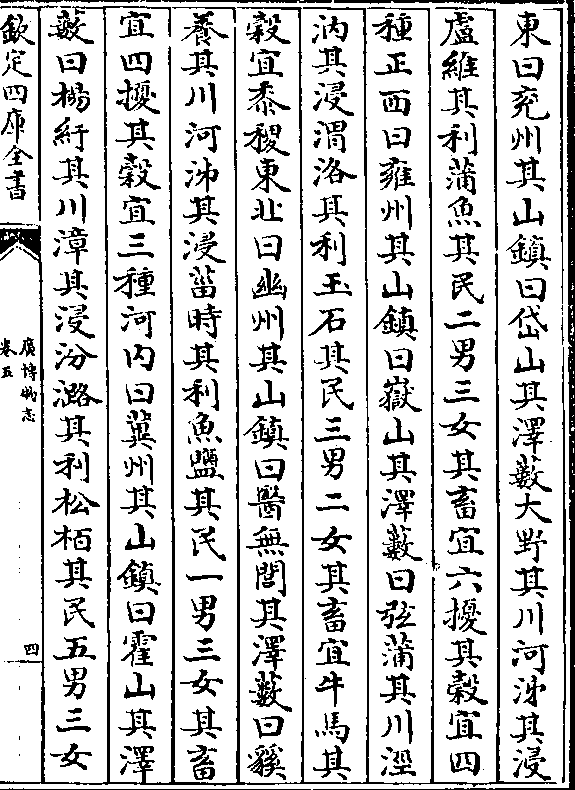 東曰兖州其山鎮曰岱山其澤藪大野其川河泲其浸
盧維其利蒲魚其民二男三女其畜宜六擾其穀宜四
種正西曰雍州其山鎮曰嶽山其澤藪曰弦蒲其川涇
汭其浸渭洛其利玉石其民三男二女其畜宜牛馬其
穀宜黍稷東北曰幽州其山鎮曰醫無閭其澤藪曰貕
養其川河泲其浸菑時其利魚鹽其民一男三女其畜
宜四擾其穀宜三種河内曰冀州其山鎮曰霍山其澤
藪曰楊紆其川漳其浸汾潞其利松栢其民五男三女
欽定四庫全書
廣博物志
卷五
四